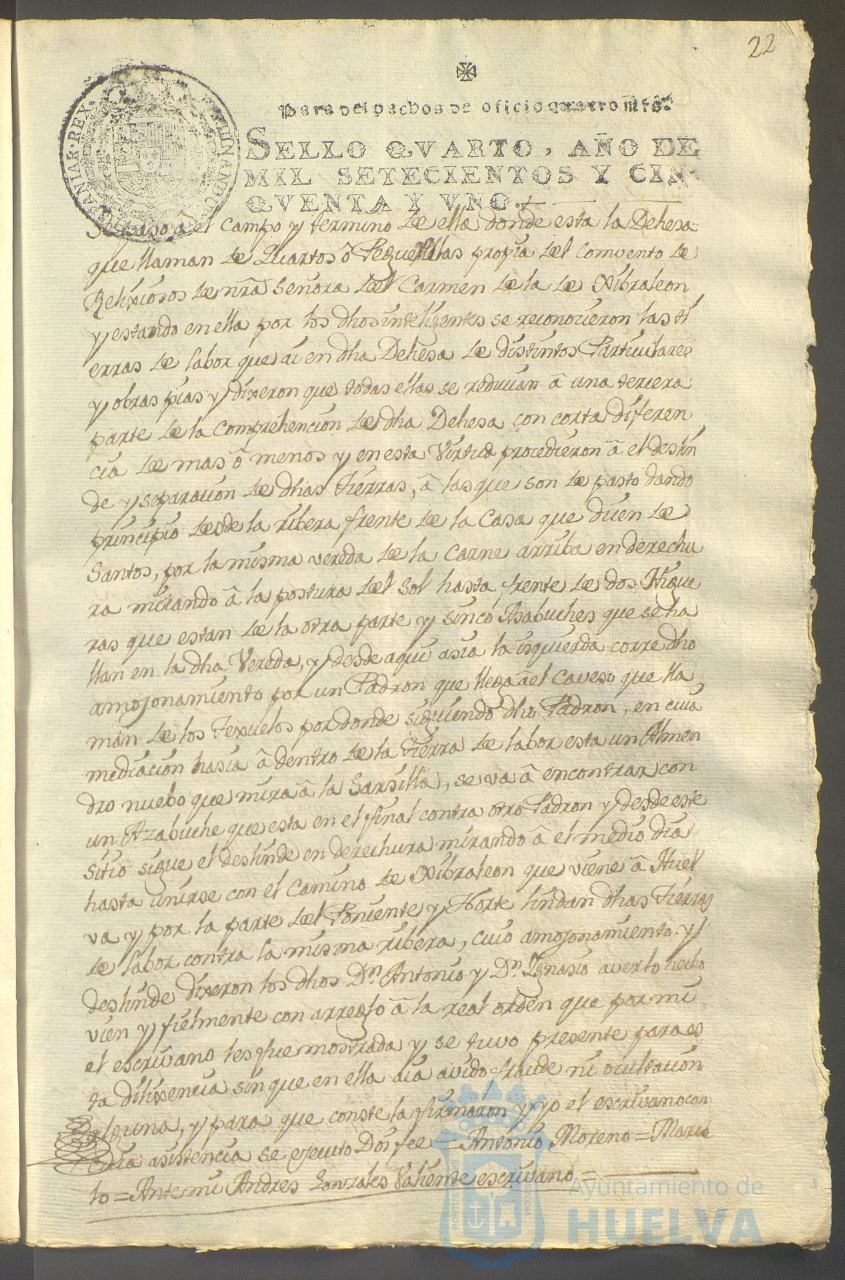 22
Para despachos de oficio quatro mrs.
SELLO QVARTO, AÑO DE
MIL SETECIENTOS Y CIN-
QVENTA Y VNO.
HISPANIAR. REX.
paso â el Campo y termino de ella donde esta la Dehesa
que llaman de Quartos ô Pegueillas propia del Comvento de
Relixiosos de nrã Señora del Carmen de la de Xibraleon
y estando en ella por los dhos intelixentes se reconocieron las ti
erras de labor que ai en dha Dehesa de distintos Particulares
y obras pias y dixeron que todas ellas se reducian â una tercera
parte de la Comprehencion de dha Dehesa con corta diferen
cia de mas ô menos y en esta Virtud procedieron â el deslin
de y separacion de dhas tierras, â las que son de pasto dando
principio desde la ribera frente de la Casa que dicen de
Santos, por la misma vereda de la Carne arriba en derechu
ra mirando â la postura del Sol hasta frente de dos Higue
ras que estan de la otra parte y sinco Asabuches que se ha
llan en la dha Vereda, y desde aqui asia la isquierda corre dho
amojonamiento por un Padron que llega el Caveso que lla
man de los texuelos por donde siguiendo dho Padron, en cuia
mediacion hasia â dentro de la tierra de labor esta un Almen
dro nuebo que mira â la Sarsilla, se va â encontrar con
un Azabuche que esta en el final contra otro Padron y desde este
sitio sigue el deslinde en derechura mirando â el medio dia
hasta unirse con el Camino de Xibraleon que viene â Huel
va y por la parte del Poniente y Norte lindan dhas tierras
de labor contra la misma ribera, cuio amojonamiento y
deslinde dixeron los dhos Dn. Antonio y Dn. Ygnasio averlo hecho
vien y fielmente con arreglo â la real orden que por mi
el escrivano les fue mostrada y se tuvo presente para es
ta dilixencia sin que en ella aia avido fraude ni ocultacion
alguna, y para que conste la firmaron y yo el escrivano con
cuia asistencia se ejecuto Doi fee = Antonio Moreno = Marce
lo = Ante mi Andres Gonzales Valiente escrivano =
Ayuntamiento de
HUELVA